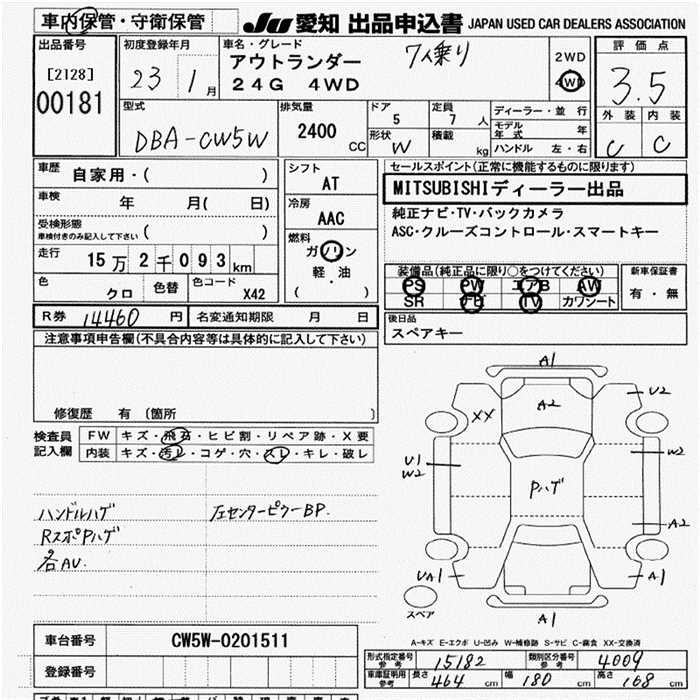 車内保管・守衛保管
JU 愛知 出品申込書 JAPAN USED CAR DEALERS ASSOCIATION
出品番号
[2128]
00181
初度登録年月
23 1月
車名・グレード
アウトランダー
24G 4WD
7人乗り
2WD
4WD
評価点
3.5
外装 内装
C C
型式
DBA-CW5W
排気量
2400 CC
ドア
5
形状
W
定員
7人
積載
kg
ディーラー・並行
モデル年式 年
ハンドル 左・右
車歴
自家用・( )
車検
年 月( 日)
受検形態
車検付きのみ記入して下さい ( )
走行
15万2千093km
色
クロ
色替
色コード
X42
シフト
AT
冷房
AAC
燃料
ガソリン
軽・油
( )
セールスポイント(正常に機能するものに限ります)
MITSUBISHIディーラー出品
純正ナビ・TV・バックカメラ
ASC・クルーズコントロール・スマートキー
装備品(純正品に限り○をつけてください)
PS PW エアB AW
SR ナビ TV カワシート
新車保証書
有・無
R券 14460円
名変通知期限 月 日
後日品
スペアキー
注意事項申告欄(不具合内容等は具体的に記入して下さい)
修復歴 有 (箇所 )
検査員記入欄
FW キズ・飛石・ヒビ割・リペア跡・X要
内装 キズ・汚レ・コゲ・穴・スレ・キレ・破レ
ハンドルハゲ
RスポPハゲ
各AU.
左センターピラーBP.
A1
A2
XX
U2
U1
W2
W2
Pハゲ
A2
UA1
A1
A1
スペア
A-キズ E-エクボ U-凹み W-補修跡 S-サビ C-腐食 XX-交換済
車台番号 CW5W-0201511
登録番号
形式指定番号 参考 15182
類別区分番号 参考 4009
車庫証明用参考 長さ 464cm 幅 180cm 高さ 168cm